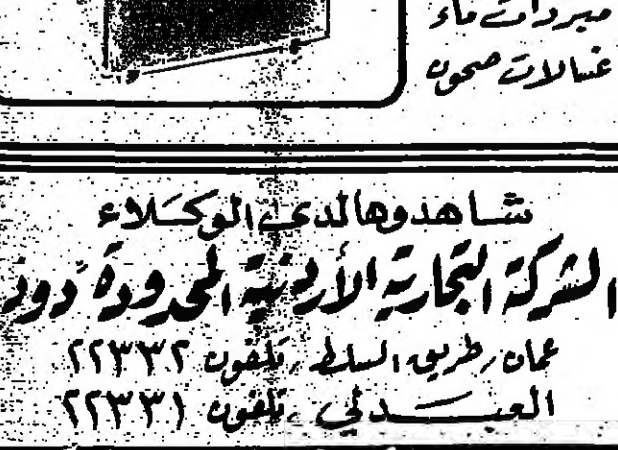 مبردات ماء
غسالات صحون
شاهدوها لدى الوكلاء
الشركة التجارية الأردنية المحدودة دوز
عمان، طريق السلط، تلفون ٢٢٣٣٢
العبدلي، تلفون ٢٢٣٣١